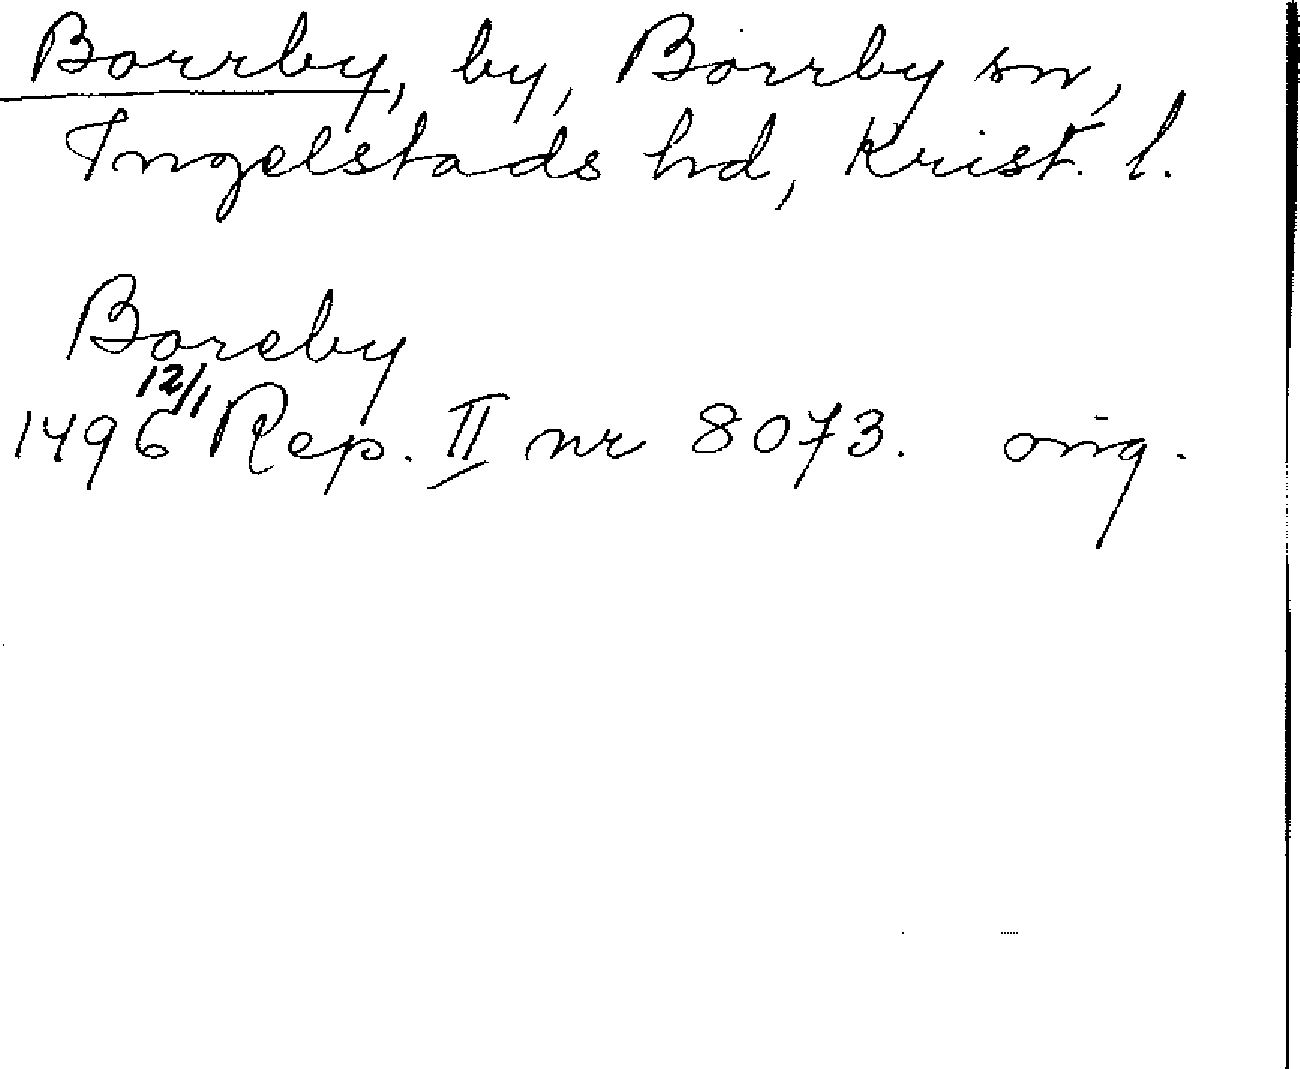 Borrby, by, Borrby sn,
Ingelstads hd, Krist. l.
Boreby
1496 12/1 Rep. II nr 8073. orig.